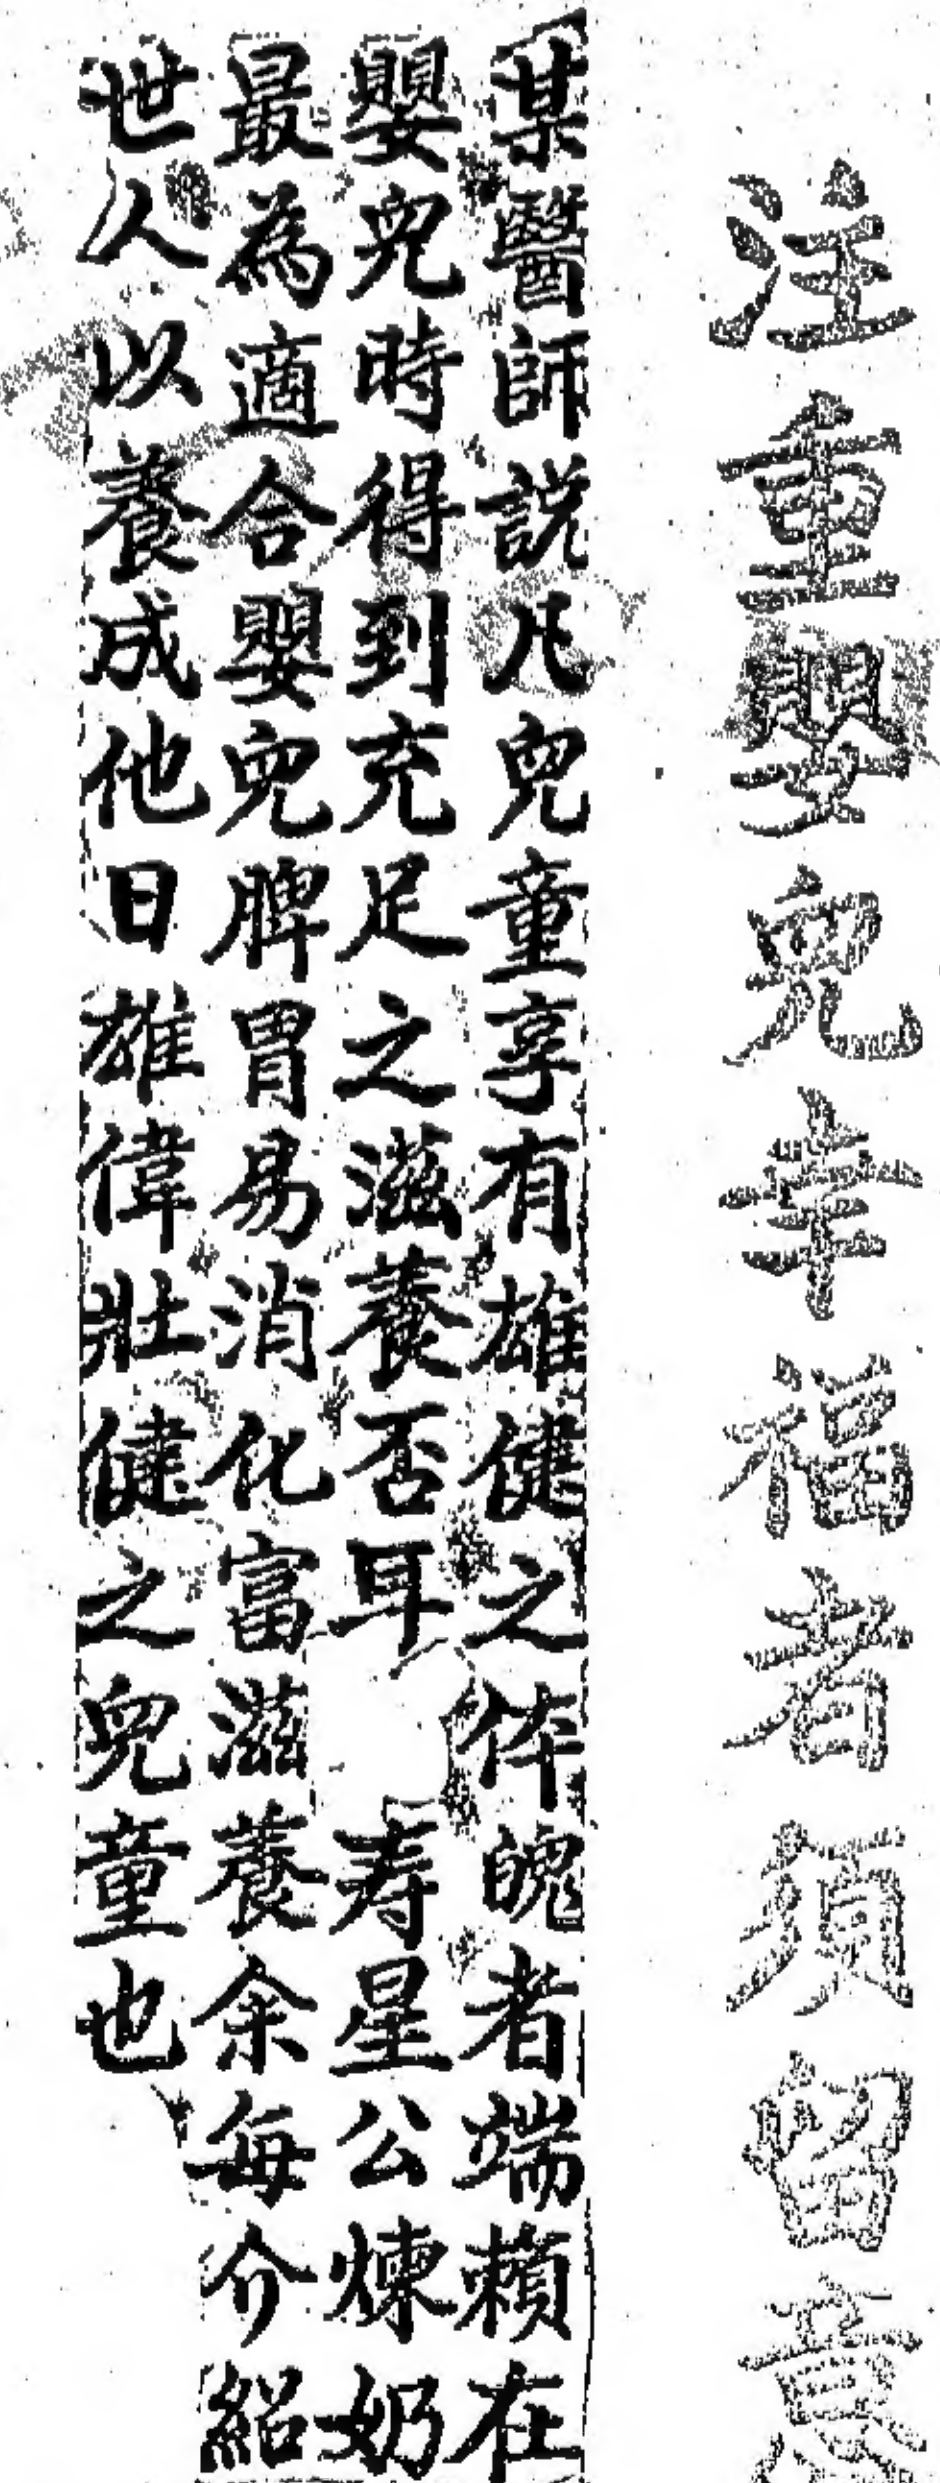 注重嬰兒幸福者須留意
某醫師説凡兒童享有雄健之体魄者端賴在
嬰兒時得到充足之滋養否耳 寿星公煉奶
最為適合嬰兒脾胃易消化富滋養余每介紹
世人以養成他日雄偉壯健之兒童也